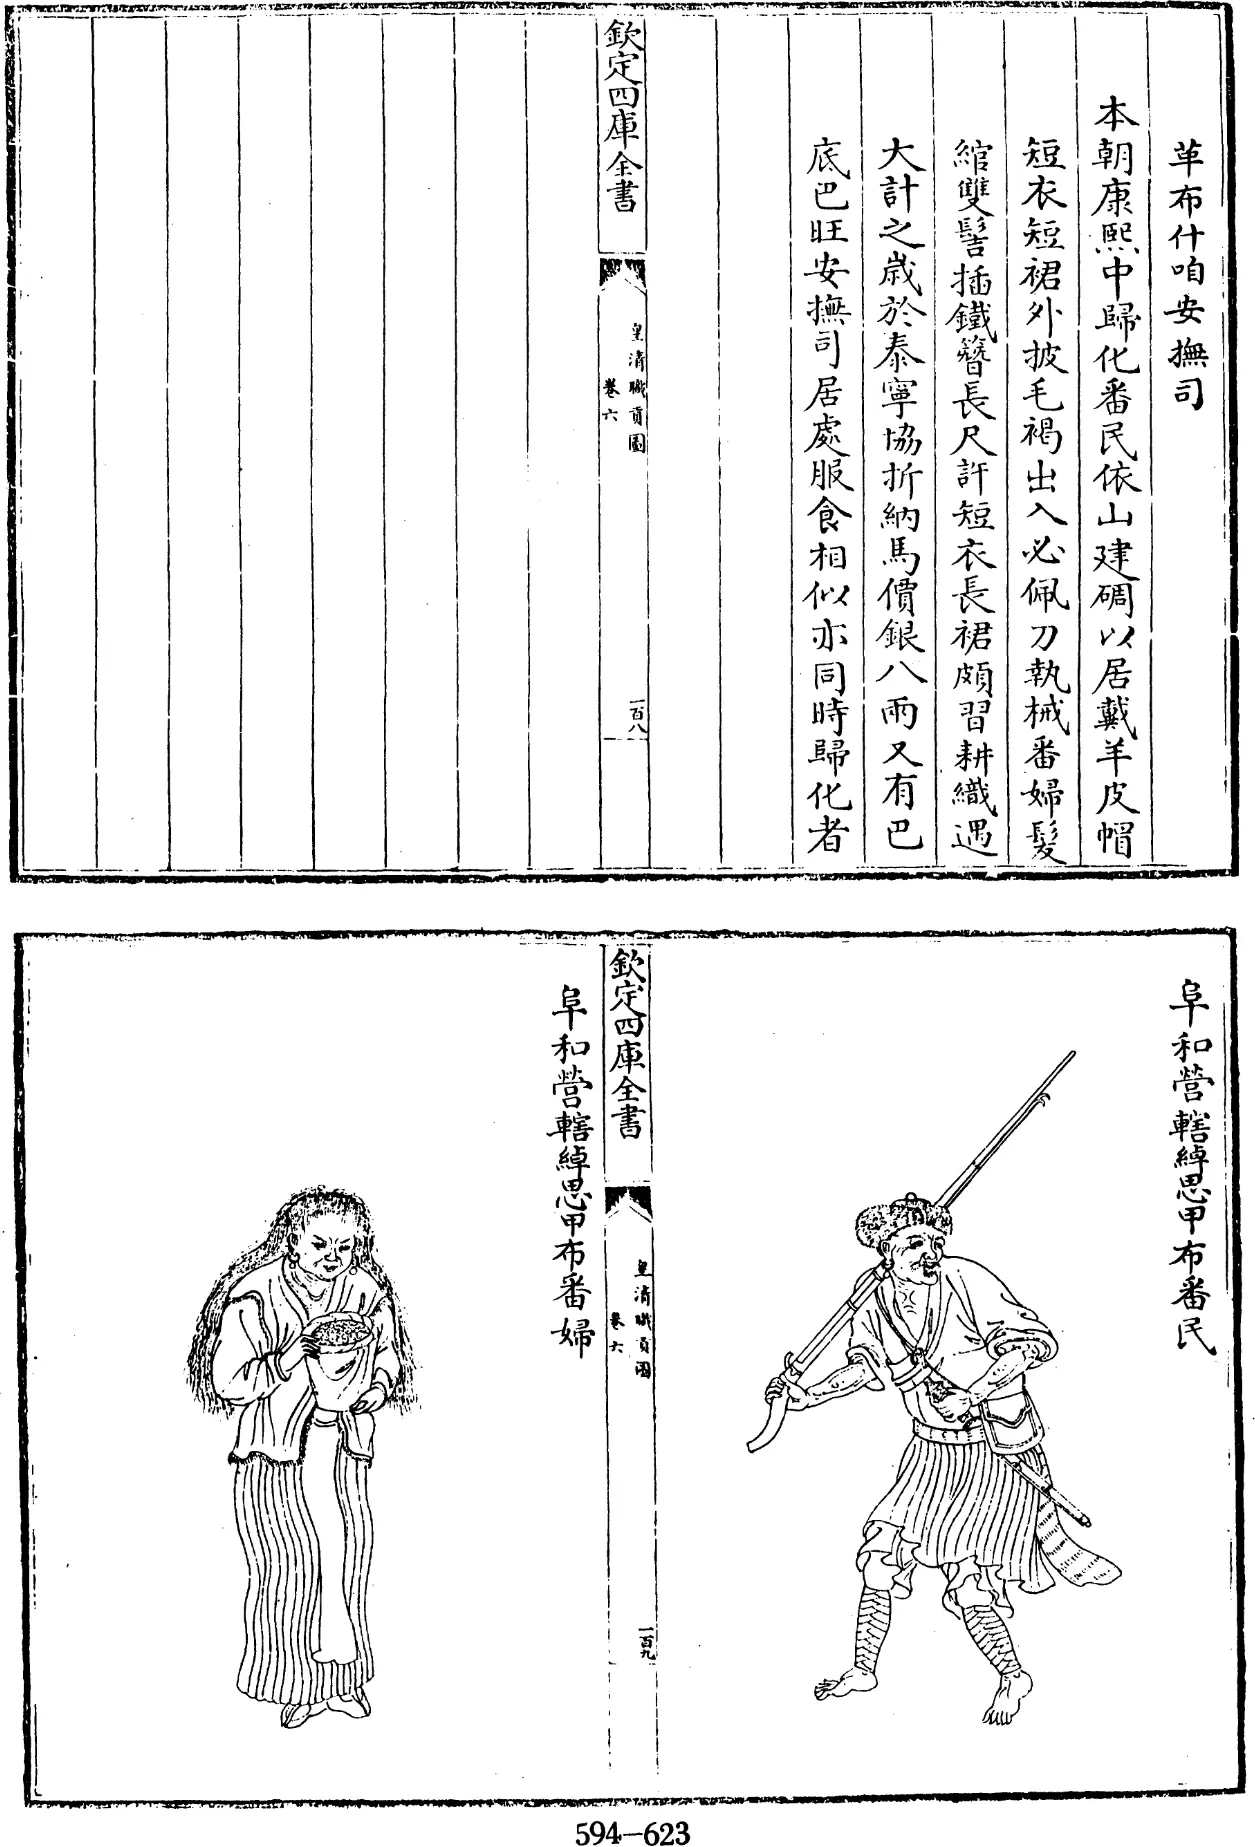 革布什咱安撫司
本朝康熙中歸化番民依山建碉以居戴羊皮帽
短衣短裙外披毛褐出入必佩刀執械番婦髮
綰雙髻插鐵簪長尺許短衣長裙頗習耕織遇
大計之歲於泰寧協折納馬價銀八兩又有巴
底巴旺安撫司居處服食相似亦同時歸化者
欽定四庫全書
皇清職貢圖
卷六
一百八
阜和營轄綽思甲布番民
欽定四庫全書
皇清職貢圖
卷六
一百九
阜和營轄綽思甲布番婦
594-623